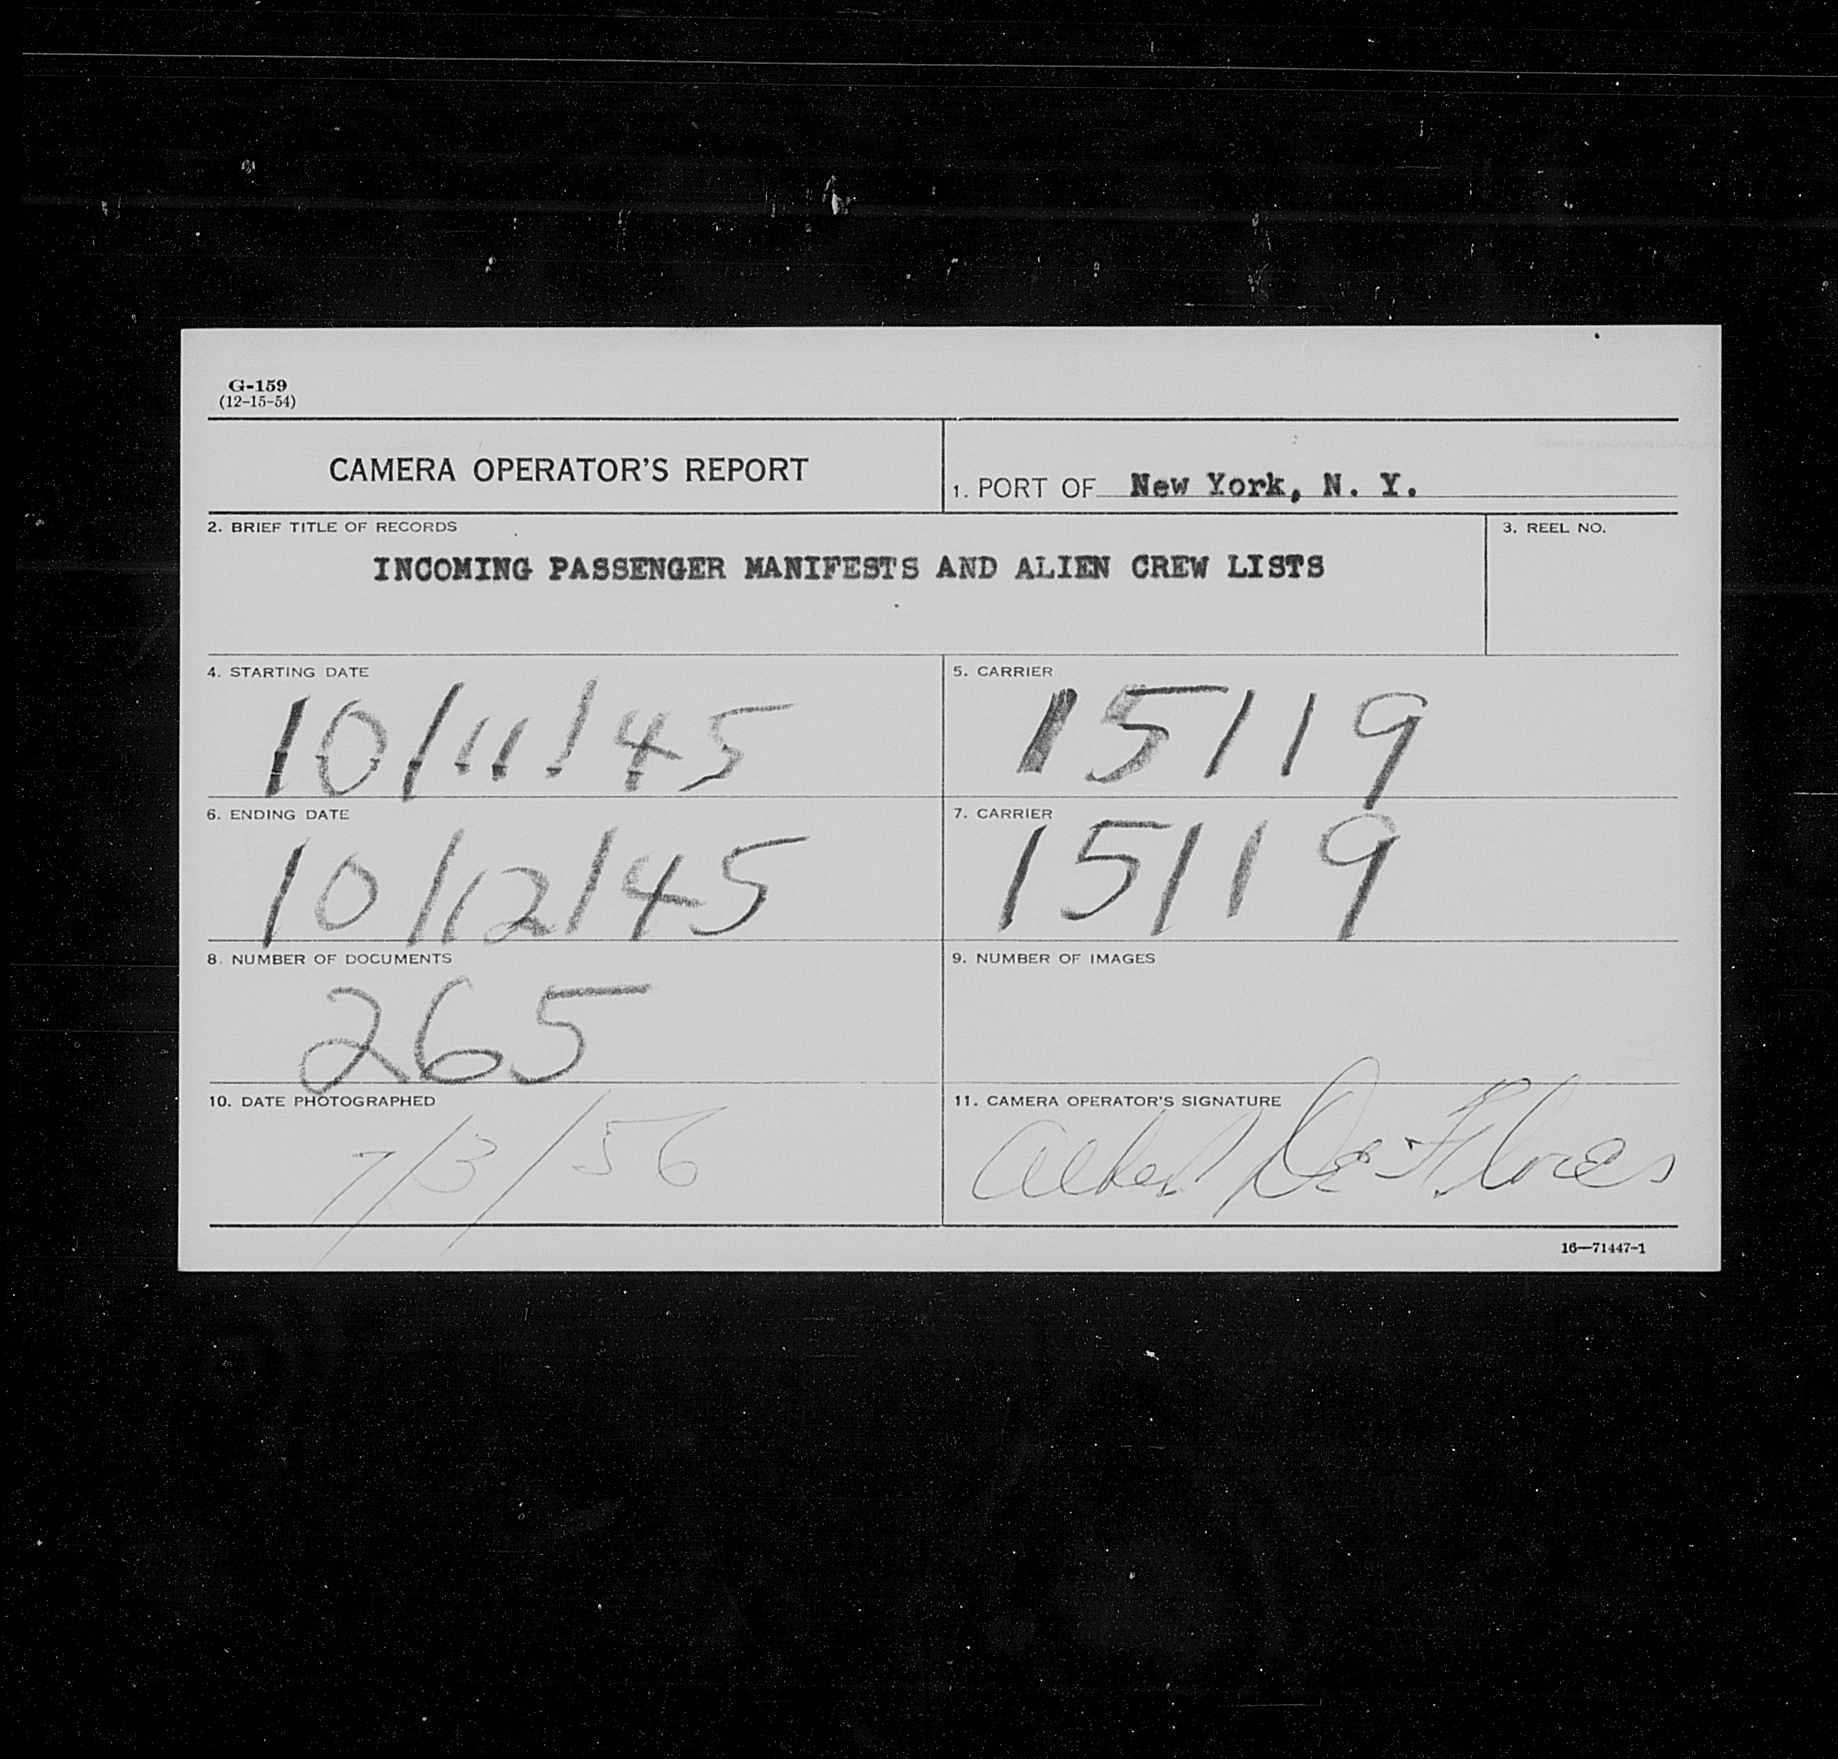 G-159
(12-15-54)
CAMERA OPERATOR'S REPORT
1. PORT OF New York, N. Y.
2. BRIEF TITLE OF RECORDS
3. REEL NO.
INCOMING PASSENGER MANIFESTS AND ALIEN CREW LISTS
4. STARTING DATE
10/11/45
5. CARRIER
15119
6. ENDING DATE
10/12/45
7. CARRIER
15119
8. NUMBER OF DOCUMENTS
265
9. NUMBER OF IMAGES
10. DATE PHOTOGRAPHED
7/3/56
11. CAMERA OPERATOR'S SIGNATURE
Albert DeFlores
16—71447-1